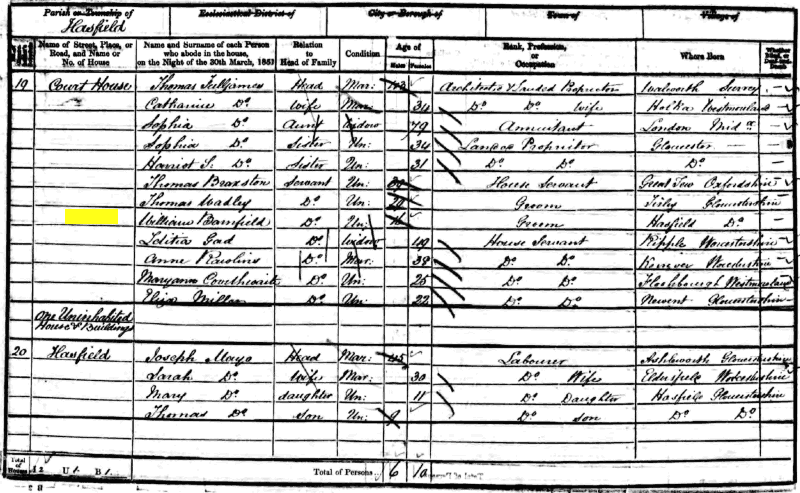 Parish or Township of Ecclesiastical District of City or Borough of Town of Village of
Hasfield
Name of Street, Place, or Road, and Name or No. of House Name and Surname of each Person who abode in the house, on the Night of the 30th March, 1851 Relation to Head of Family Condition Age of Males Females Rank, Profession, or Occupation Where Born Whether Blind, or Deaf-and-Dumb
19 Court House Thomas Fulljames Head Mar: 43 Architect & Landed Proprietor Walworth Surrey
Catherine Do Wife Mar: 34 Do Do Wife Westmoreland
Sophia Do Aunt Widow 79 Annuitant London Midx
Sophia Do Sister Un: 34 Landed Proprietor Gloucester
Harriot S. Do Sister Un: 31 Do Do Do
Thomas Braxston Servant Un: House Servant Great Tew Oxfordshire
Thomas Wadley Do Un: Groom Tirley Gloucestershire
William Bamfield Do Un: Groom Hasfield Do
Letitia Gad Do Widow 49 House Servant Ripple Worcestershire
Anne Rawlins Do Mar: 38 Do Do Kempsey Worcestershire
Maryann Do Un: 25 Do Do Westmoreland
Eliza Miller Do Un: 22 Do Do Newent Gloucestershire
One Uninhabited
House & Buildings
20 Hasfield Joseph Mayo Head Mar: 45 Labourer Ashleworth Gloucestershire
Sarah Do Wife Mar: 30 Do Wife Eldersfield Worcestershire
Mary Do daughter Un: 11 Do Daughter Hasfield Gloucestershire
Thomas Do Son Un: 9 Do son Do Do
Total of Houses I 2 U 1 B 1 Total of Persons 6 10